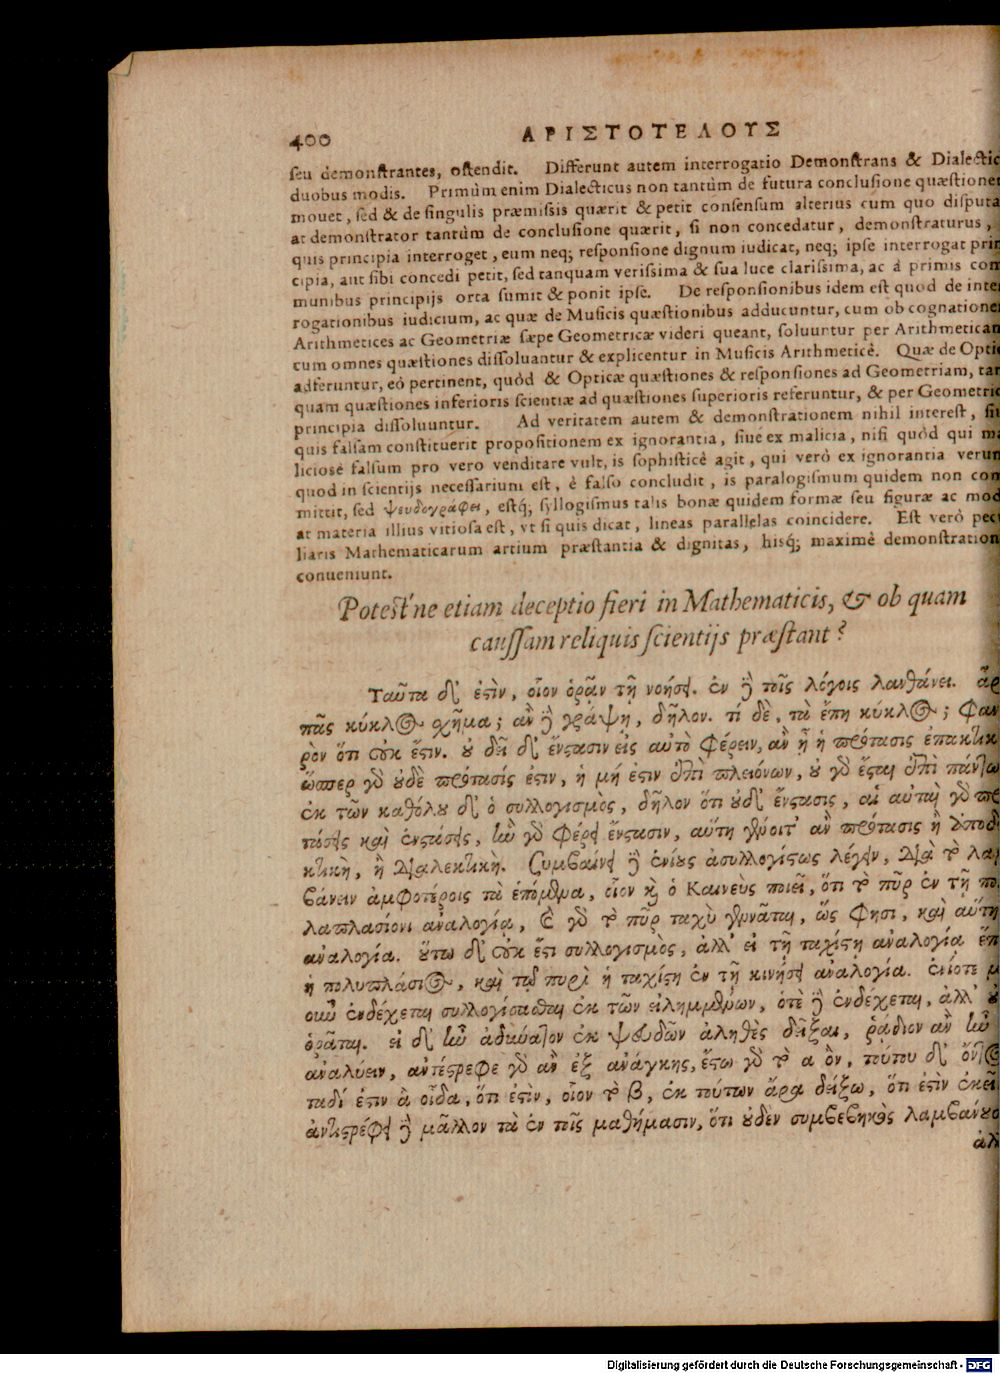 400 ΑΡΙΣΤΟΤΕΛΟΥΣ
ſeu demonſtrantes, oſtendit. Differunt autem interrogatio Demonſtrans & Dialectic
duobus modis. Primùm enim Dialecticus non tantùm de futura concluſione quæſtionem
mouet, ſed & de ſingulis præmiſsis quærit & petit conſenſum alterius cum quo diſputa
at demonſtrator tantùm de concluſione quærit, ſi non concedatur, demonſtraturus,
quis principia interroget, eum neq; reſponſione dignum iudicat, neq; ipſe interrogat prin
cipia, aut ſibi concedi petit, ſed tanquam veriſsima & ſua luce clariſsima, ac à primis com
munibus principijs orta ſumit & ponit ipſe. De reſponſionibus idem eſt quod de inter
rogationibus iudicium, ac quæ de Muſicis quæſtionibus adducuntur, cum ob cognatione
Arithmetices ac Geometriæ ſæpe Geometricæ videri queant, ſoluuntur per Arithmetican
cum omnes quæſtiones diſſoluantur & explicentur in Muſicis Arithmeticè. Quæ de Optic
adferuntur, eò pertinent, quòd & Opticæ quæſtiones & reſponſiones ad Geometriam, tan
quam quæſtiones inferioris ſcientiæ ad quæſtiones ſuperioris referuntur, & per Geometric
principia diſſoluuntur. Ad veritatem autem & demonſtrationem nihil intereſt, ſiu
quis falſam conſtituerit propoſitionem ex ignorantia, ſiue ex malicia, niſi quòd qui ma
licioſè falſum pro vero venditare vult, is ſophiſticè agit, qui verò ex ignorantia verum
quod in ſcientijs neceſſarium eſt, è falſo concludit, is paralogiſmum quidem non com
mittit, ſed ψευδογράφει, eſtq́; ſyllogiſmus talis bonæ quidem formæ ſeu figuræ ac mod
at materia illius vitioſa eſt, vt ſi quis dicat, lineas parallelas coincidere. Eſt verò pecu
liaris Mathematicarum artium præſtantia & dignitas, hisq́; maximè demonſtration
conueniunt.
Poteſt'ne etiam deceptio fieri in Mathematicis, & ob quam
cauſſam reliquis ſcientijs præſtant?
Ταῦτα δ' ἐστὶν, οἷον ὁρᾶν τῇ νοήσει. ἐν δὲ τοῖς λόγοις λανθάνει. ἆρ
πᾶς κύκλος σχῆμα; ἂν δὲ γράψῃ, δῆλον. τί δὲ, τὰ ἔπη κύκλος; Φαν
ρὸν ὅτι οὐκ ἔστιν. οὐ δεῖ δ' ἔνστασιν εἰς αὐτὸ φέρειν, ἂν ᾖ ἡ πρότασις ἐπακτικ
ὥσπερ γὰρ οὐδὲ πρότασίς ἐστιν, ἣ μή ἐστιν ἐπὶ πλειόνων, οὐ γὰρ ἔσται ἐπὶ πάντω
ἐκ τῶν καθόλου δ' ὁ συλλογισμὸς, δῆλον ὅτι οὐδ' ἔνστασις, αἱ αὐταὶ γὰρ προ
τάσεις καὶ ἐνστάσεις, ἣν γὰρ φέρει ἔνστασιν, αὕτη γένοιτ' ἂν πρότασις ἢ ἀποδε
κτικὴ, ἢ διαλεκτικὴ. Συμβαίνει δὲ ἐνίους ἀσυλλογίστως λέγειν, διὰ τὸ λαμ
βάνειν ἀμφοτέροις τὰ ἑπόμενα, οἷον καὶ ὁ Καινεὺς ποιεῖ, ὅτι τὸ πῦρ ἐν τῇ πο
λαπλασίονι ἀναλογία, καὶ γὰρ τὸ πῦρ ταχὺ γεννᾶται, ὥς φησι, καὶ αὕτη
ἀναλογία. οὕτω δ' οὐκ ἔστι συλλογισμὸς, ἀλλ' εἰ τῇ ταχίστῃ ἀναλογία ἕπ
ἡ πολυπλάσιος, καὶ τῷ πυρὶ ἡ ταχίστη ἐν τῇ κινήσει ἀναλογία. ἐνίοτε μ
οὖν ἐνδέχεται συλλογίσασθαι ἐκ τῶν εἰλημμένων, ὁτὲ δὲ ἐνδέχεται, ἀλλ' οὐ
ὁρᾶται. εἰ δ' ἦν ἀδύνατον ἐκ ψευδῶν ἀληθὲς δεῖξαι, ῥάδιον ἂν ἦν
ἀναλύειν, ἀντέστρεφε γὰρ ἂν ἐξ ἀνάγκης, ἔστω γὰρ τὸ α ὂν, τούτου δ' ὄντος
ταδί ἐστιν ἃ οἶδα, ὅτι ἐστὶν, οἷον τὸ β, ἐκ τούτων ἄρα δείξω, ὅτι ἐστὶν ἐκεῖ
ἀντιστρέφει δὲ μᾶλλον τὰ ἐν τοῖς μαθήμασιν, ὅτι οὐδὲν συμβεβηκὸς λαμβάνουσ
ἀλ
Digitalisierung gefördert durch die Deutsche Forschungsgemeinschaft - DFG